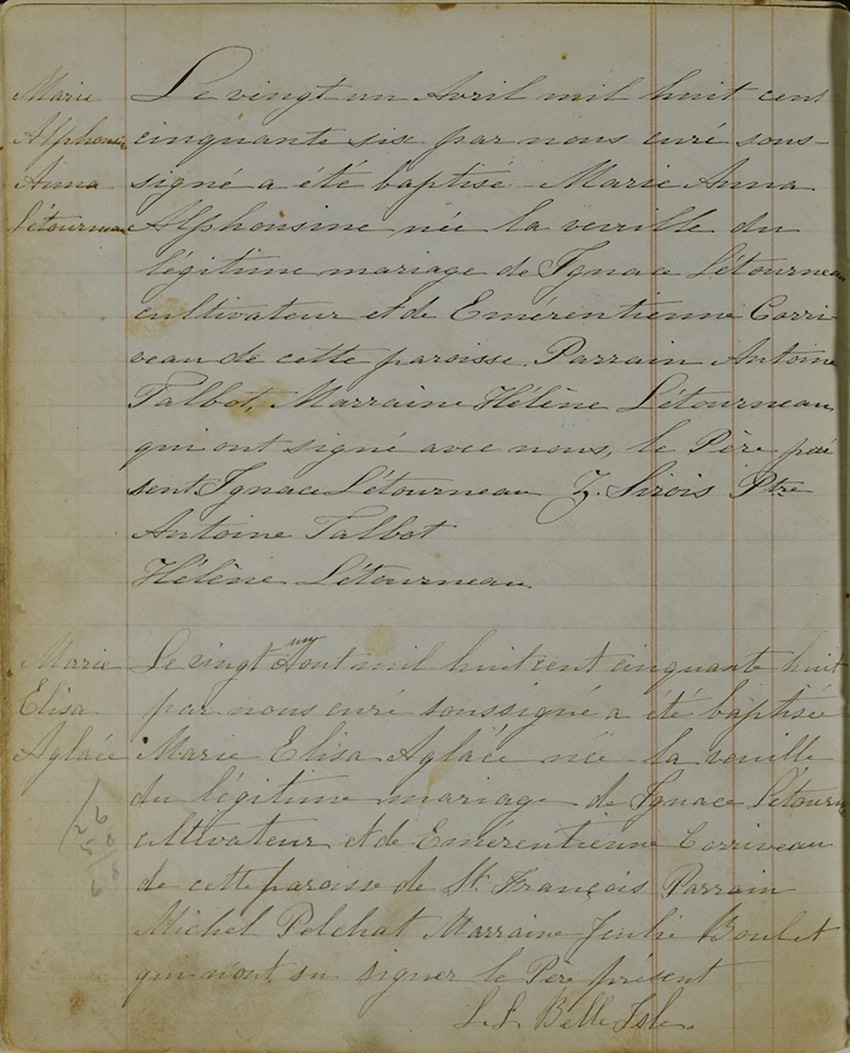 Marie
Alphonsine
Anna
Létourneau
Le vingt un Avril mil huit cent
cinquante six par nous curé sous-
signé a été baptisé Marie Anna
Alphonsine née la veuille du
légitime mariage de Ignace Létourneau
cultivateur et de Emérentienne Corri
veau de cette paroisse. Parrain Antoine
Talbot, Marraine Hélène Létourneau,
qui ont signé avec nous, le Père pré
sent Ignace Létourneau Z. Sirois Ptre
Antoine Talbot
Hélène Létourneau
Marie
Elisa
Aglaée
Le vingt Aout mil huit cent cinquante huit
par nous curé soussigné a été baptisée
Marie Elisa Aglaée née la veuille
du légitime mariage de Ignace Létourn
cultivateur et de Emerentienne Corriveau
de cette paroisse de St. François Parrain
Michel Pelchat Marraine Julie Boulet
qui n'ont su signer le Père présent
L. L. Belle Isle.
26
58
68